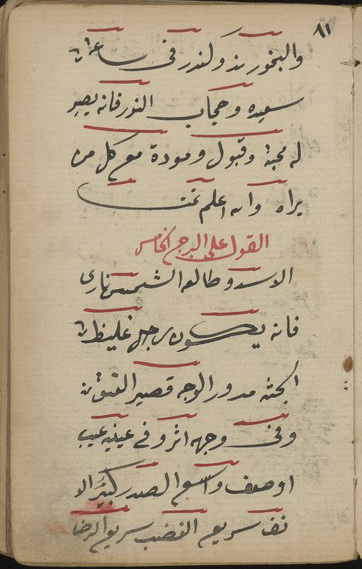 ٨١
والبخور ند ولندر فى ساعة
سعيده وحجاب النور فانه يصير
له محبة وقبول ومودة مع كل من
يراه والله اعلم تمت
القول على البرج الخامس
الاسد وطالعه الشمس نارى
فانه يكون رجل غليظ
الجثه مدور الوجه قصير العنق
وفى وجهه اثر وفى عينيه عيب
او ضعف واسع الصدر كبير الا
نف سريع الغضب سريع الرضا